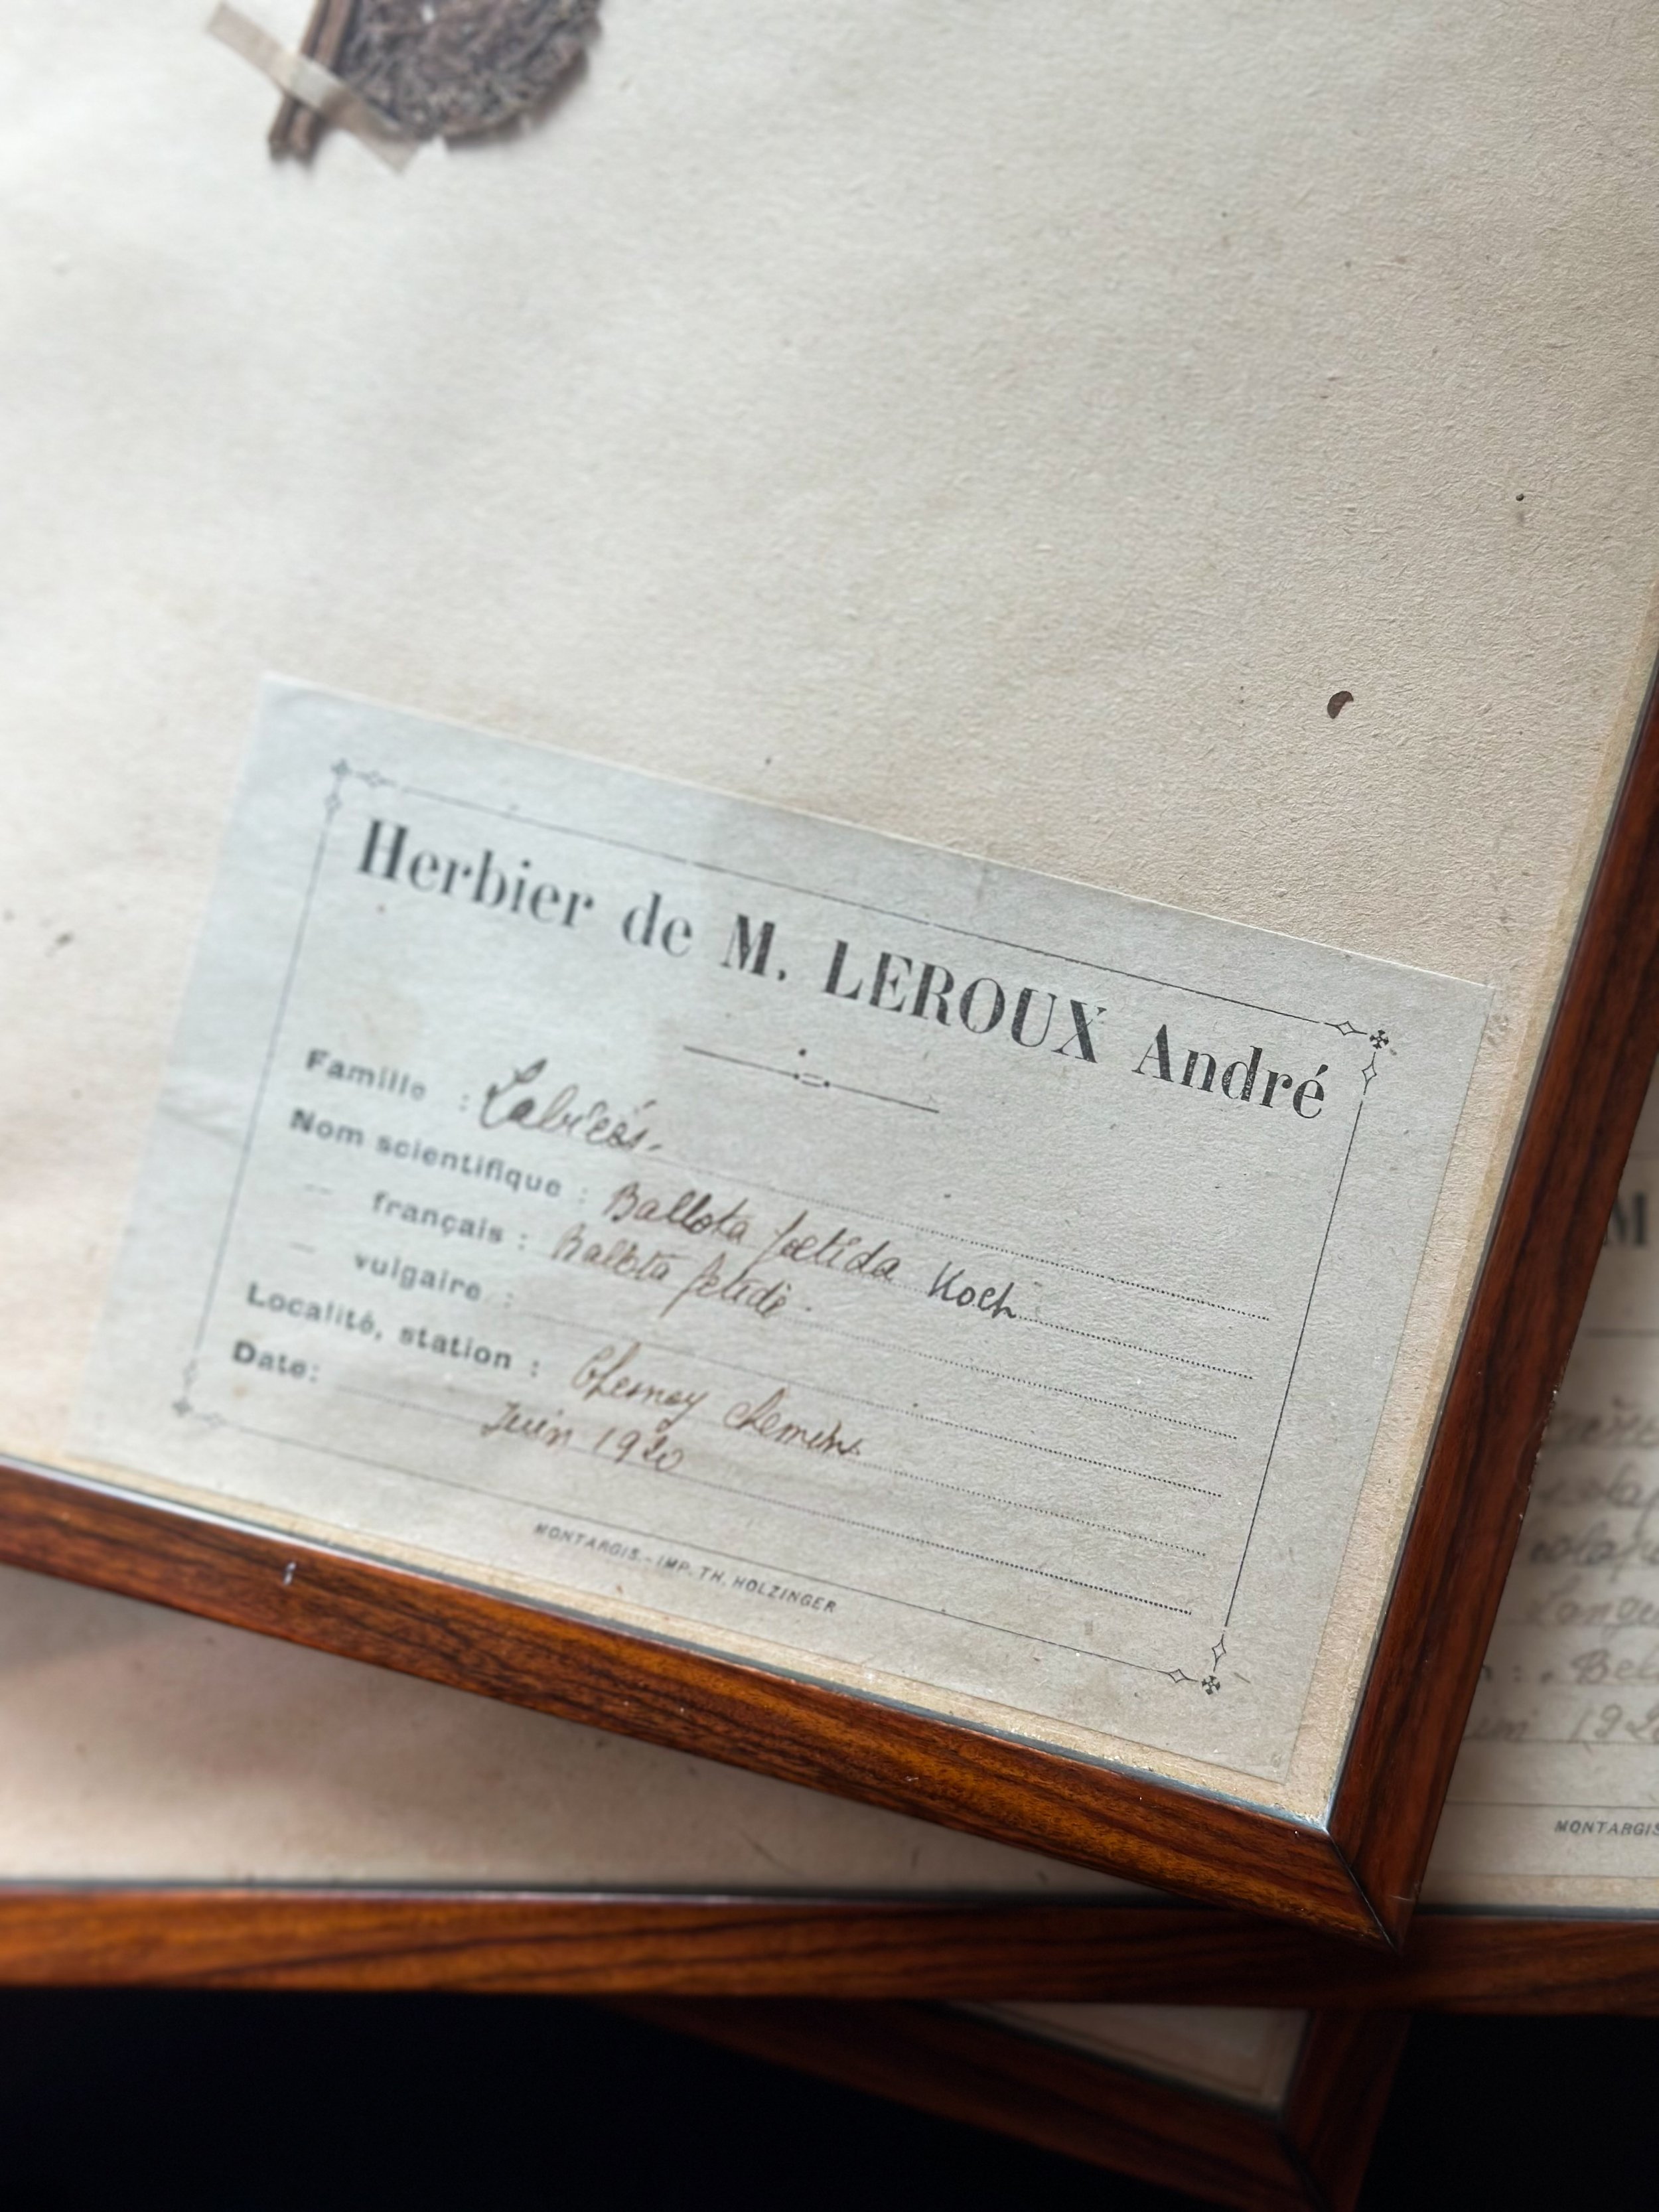 Herbier de M. LEROUX André
Famille : Labiées.
Nom scientifique : Ballota fœtida Koch
— français : Ballota fétide.
— vulgaire :
Localité, station : chemins
Date: Juin 1920
MONTARGIS. - IMP. TH. HOLZINGER
M
192
MONTARGIS